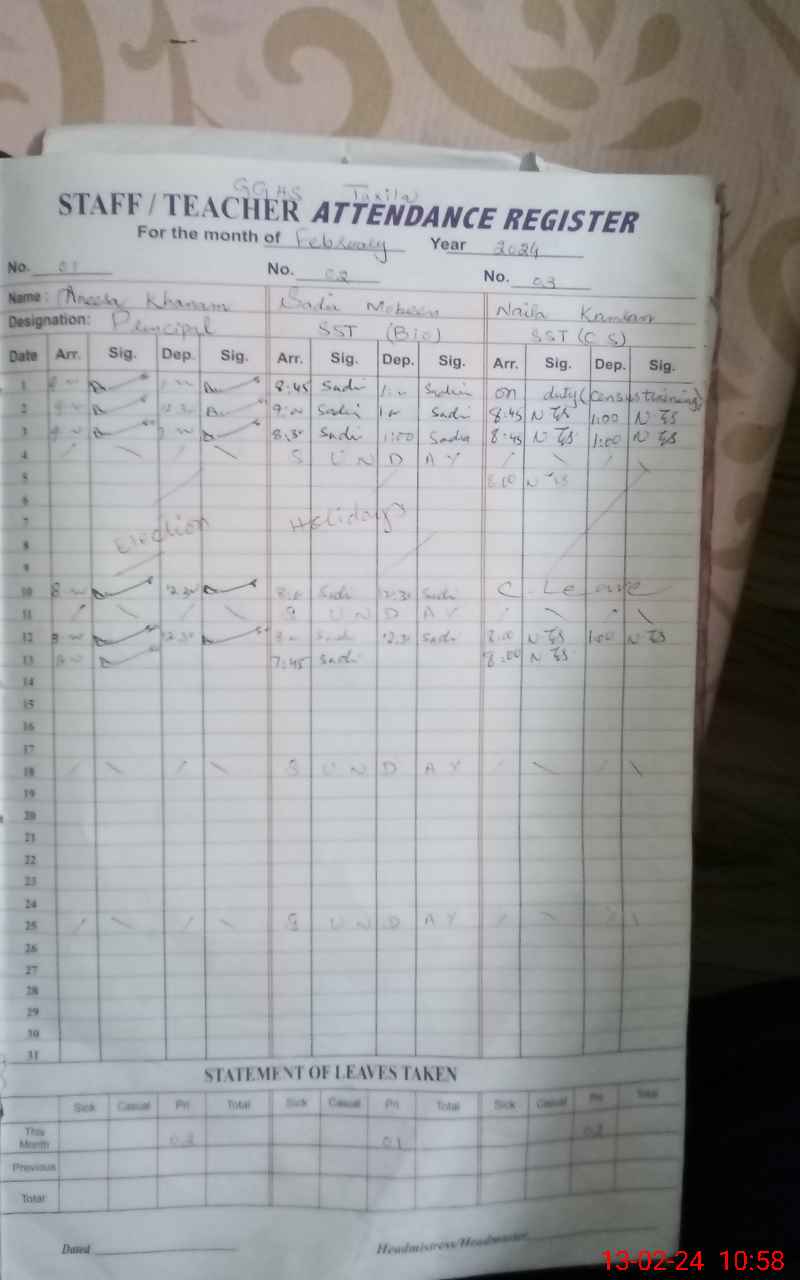 GGHS Taxila
STAFF / TEACHER ATTENDANCE REGISTER
For the month of February Year 2024
No. 01 No. 02 No. 03
Name: Aneela Khanam Sadia Mobeen Naila Kamran
Designation: Principal SST (Bio) SST (C.S)
Date Arr. Sig. Dep. Sig. Arr. Sig. Dep. Sig. Arr. Sig. Dep. Sig.
1 8:45 Sadi Sadia on duty (census training)
2 Sadi Sadi 8:45 1:00
3 8:30 Sadi 1:00 Sadia 8:45 1:00
4 S U N D A Y
5 8:00
6
7 Election Holidays
8
9
10 8 12.30 Sadi 12.30 Sadi C. Leave
11 S U N D A Y
12 12.30 Sadi 12.30 Sadi 8:00 1:00
13 7:45 Sadi 8:00
14
15
16
17
18 S U N D A Y
19
20
21
22
23
24
25 S U N D A Y
26
27
28
29
30
31
STATEMENT OF LEAVES TAKEN
Sick Casual Pri Total Sick Casual Pri Total Sick Casual Pri Total
This Month 02 01 02
Previous
Total
Dated Headmistress/Headmaster
13-02-24 10:58